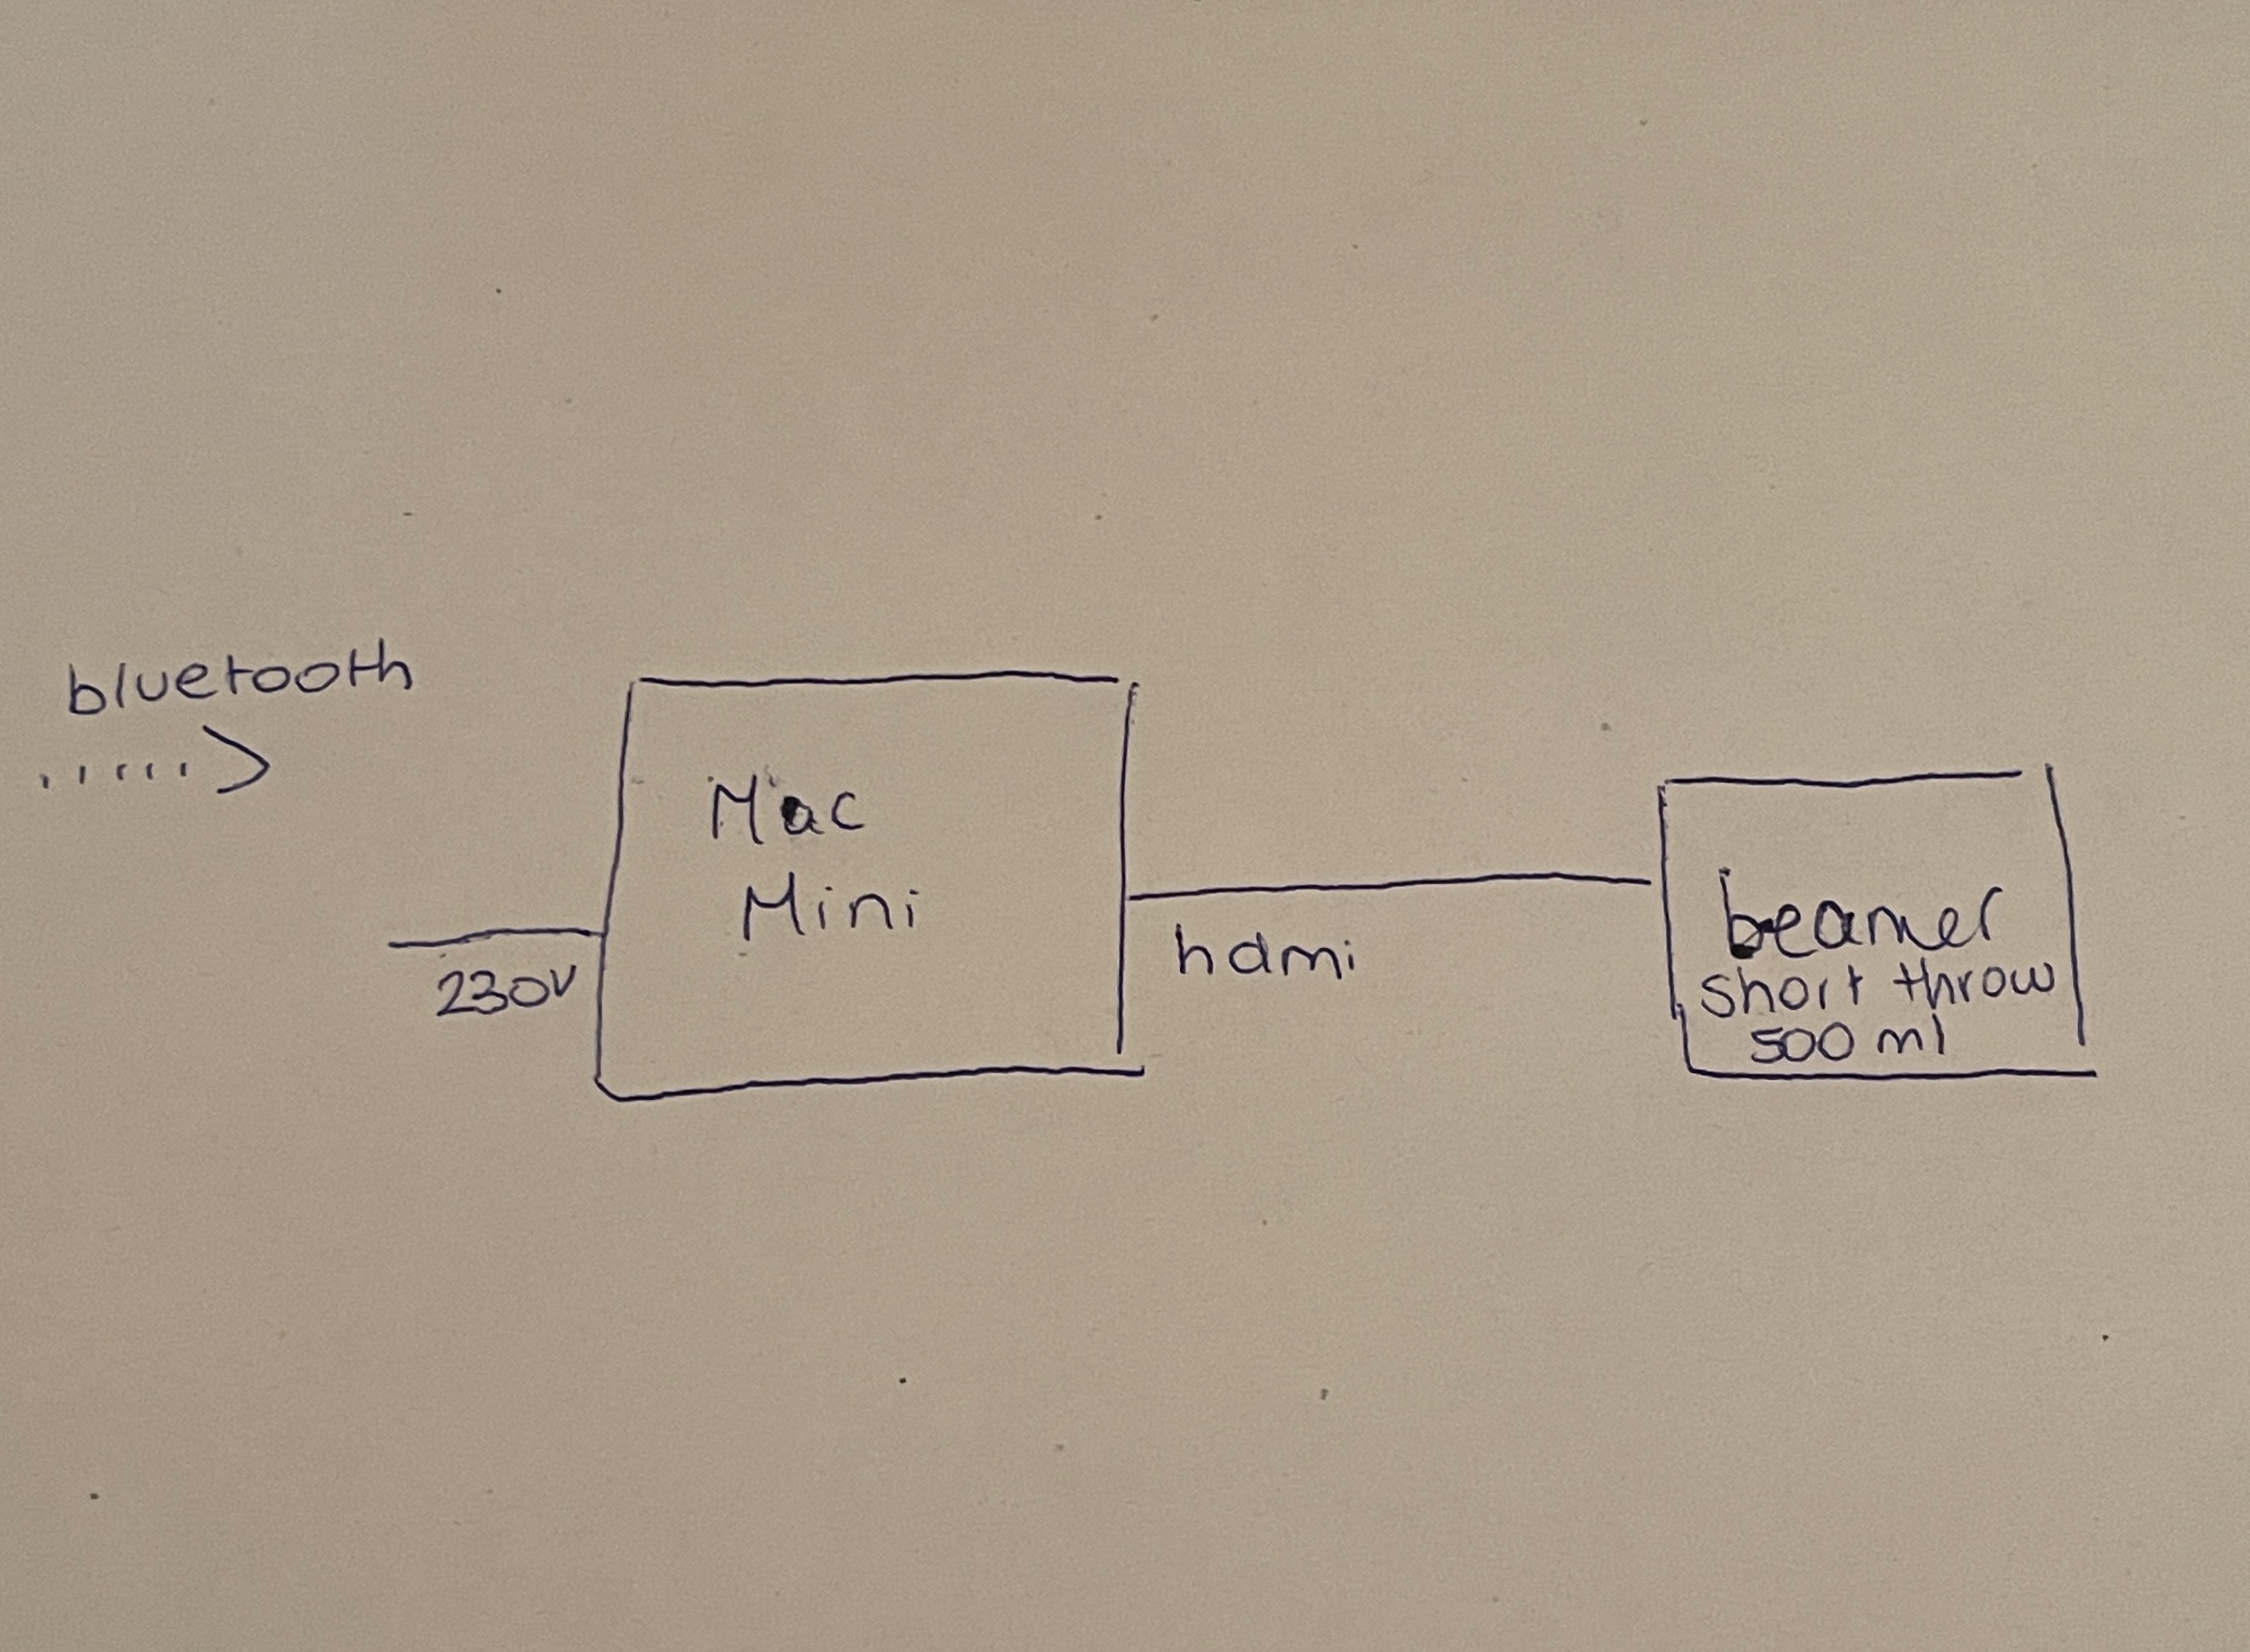 bluetooth
Mac
Mini
230V
hdmi
beamer
short throw
500 ml